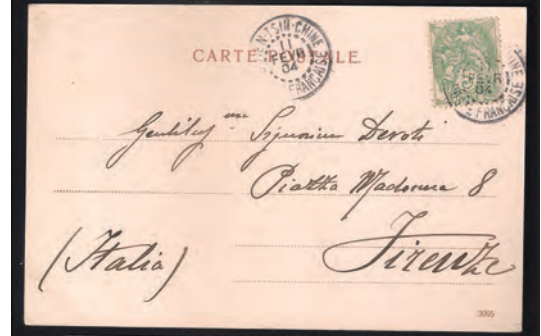 CARTE POSTALE
TIEN-TSIN-CHINE
11
FEVR
04
FRANÇAISE
FEVR
04
CHINE
E FRANÇAISE
Gentilissma Signorina Devoti
Piazza Madonna 8
Firenze
(Italia)
3095